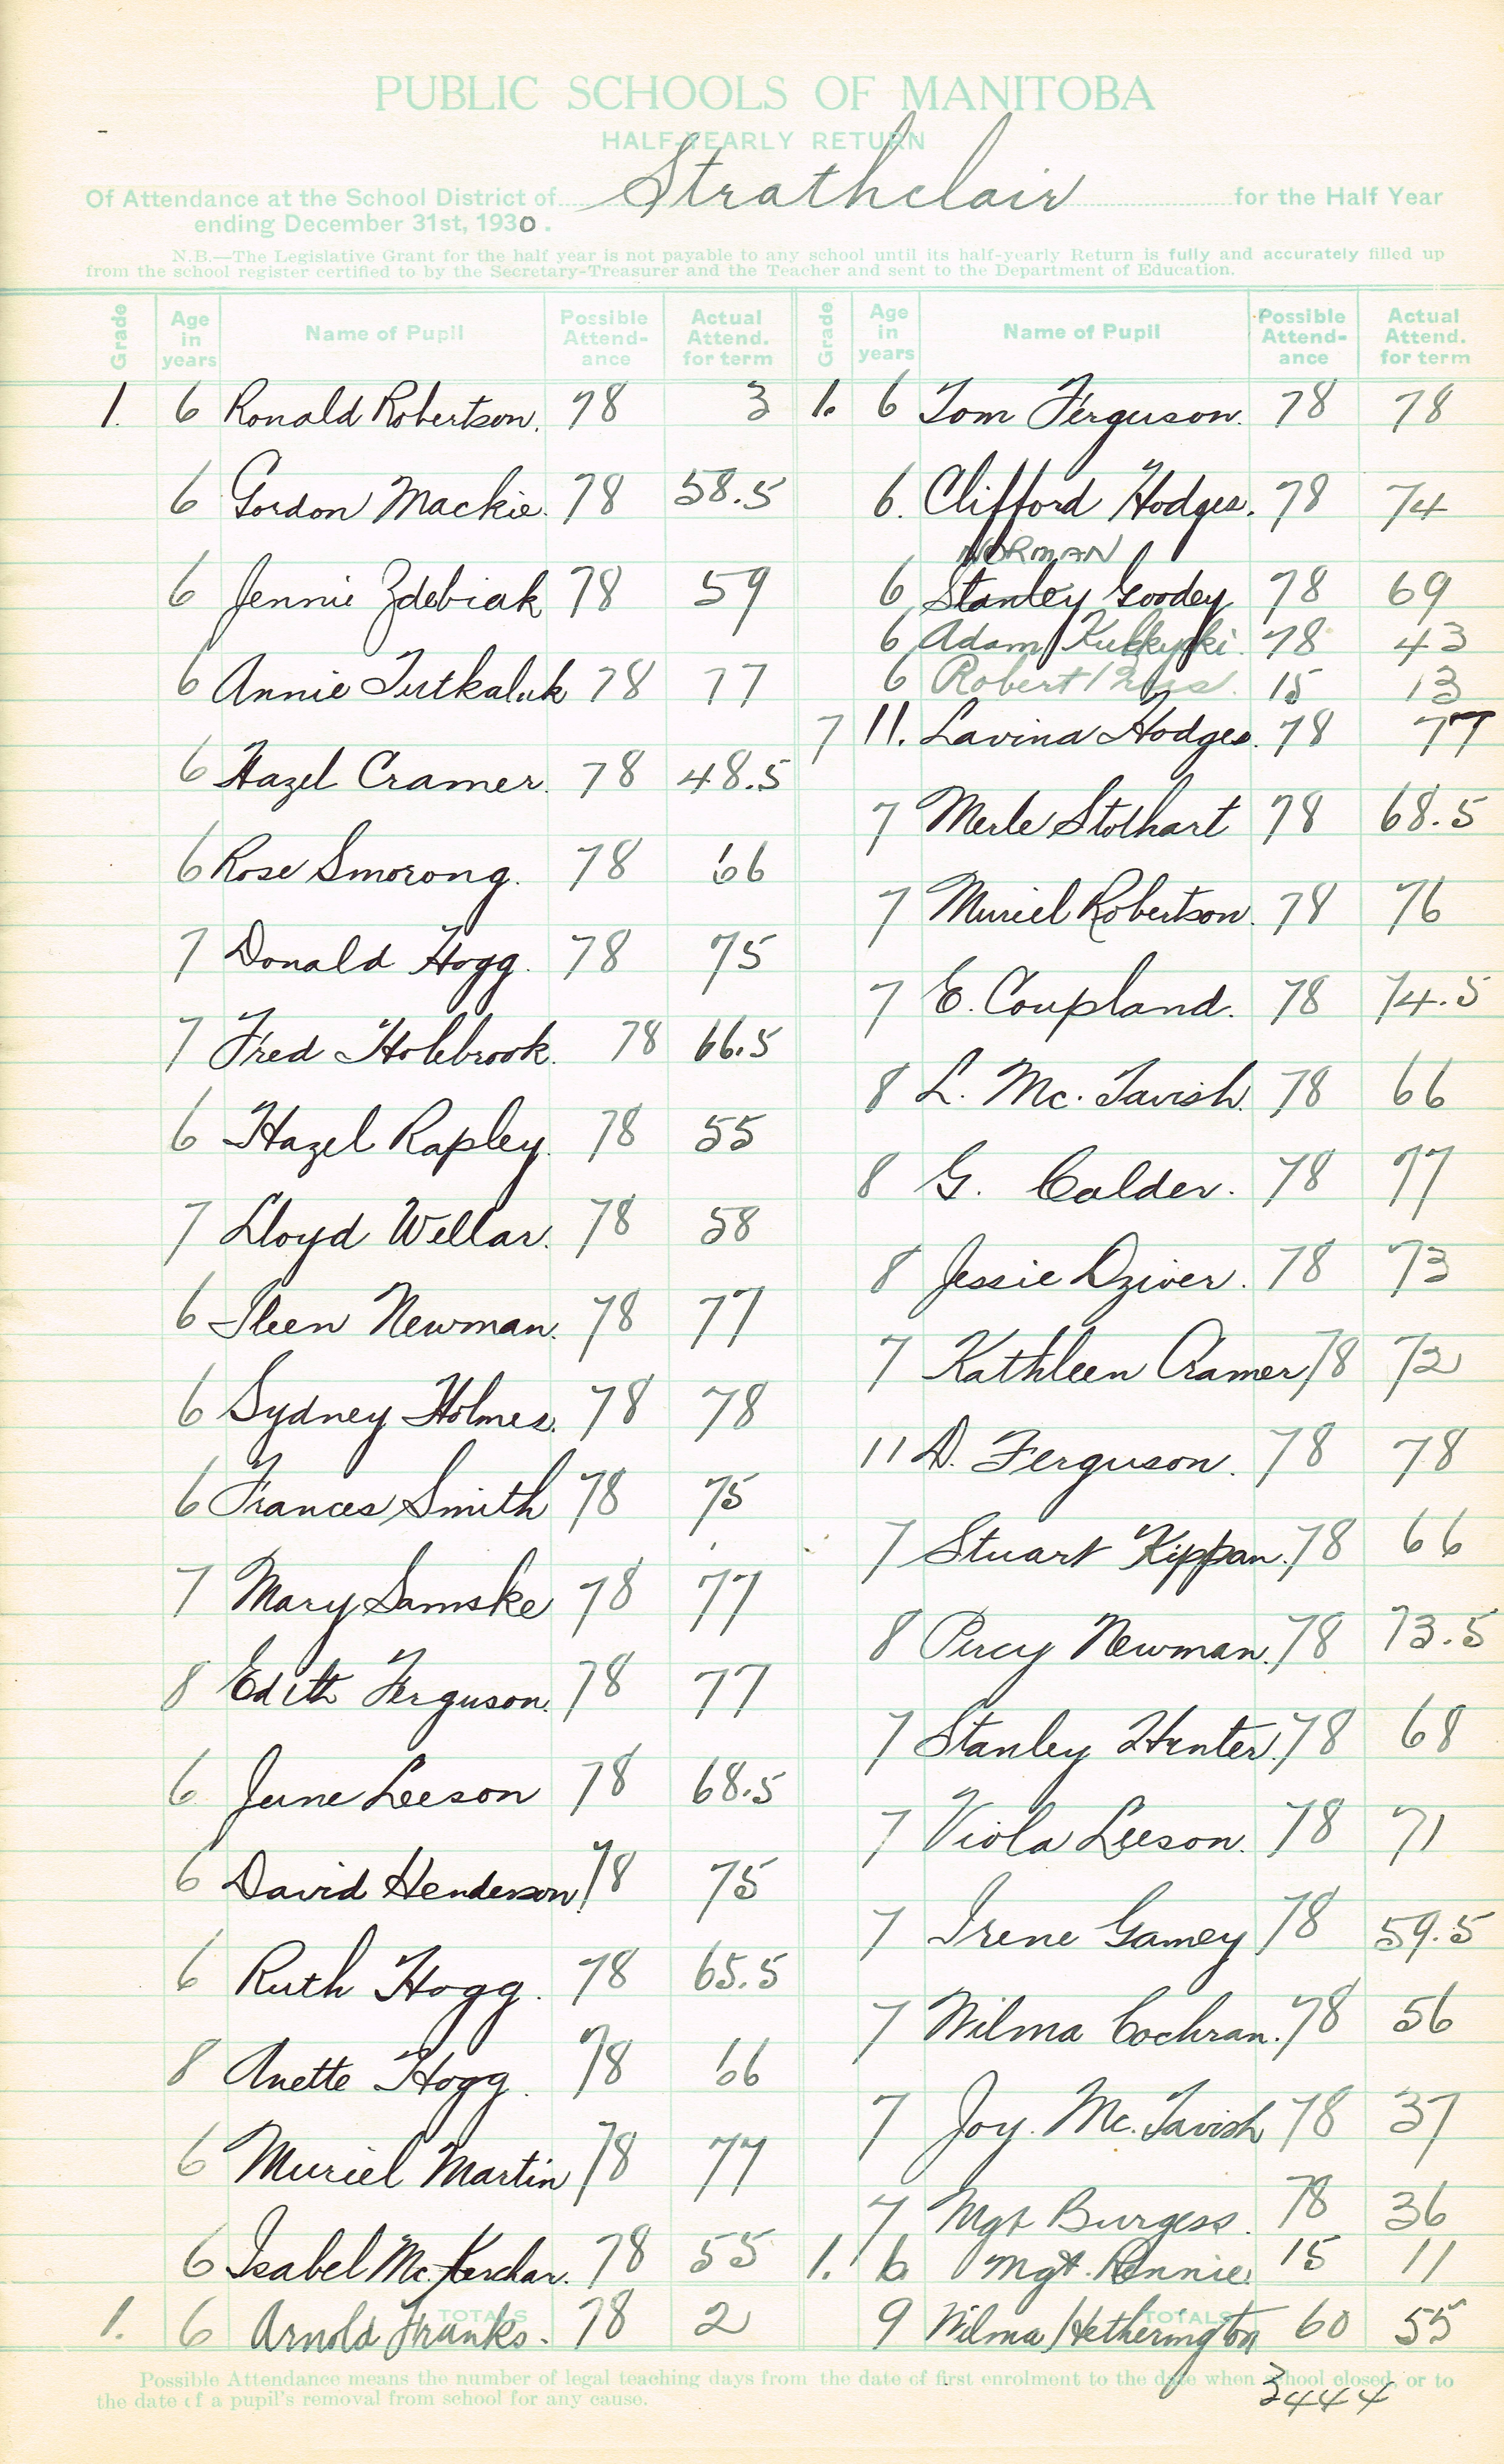 PUBLIC SCHOOLS OF MANITOBA
HALF-YEARLY RETURN
Of Attendance at the School District of Strathclair for the Half Year
ending December 31st, 1930.
N.B.—The Legislative Grant for the half year is not payable to any school until its half-yearly Return is fully and accurately filled up
from the school register certified to by the Secretary-Treasurer and the Teacher and sent to the Department of Education.
Grade Age in years Name of Pupil Possible Attend-ance Actual Attend. for term
1. 6 Ronald Robertson. 78 3
6 Gordon Mackie. 78 58.5
6 Jennie Zdebiak 78 59
6 Annie Tutkaluk 78 77
6 Hazel Cramer. 78 48.5
6 Rose Smorong. 78 66
7 Donald Hogg. 78 75
7 Fred Holebrook. 78 66.5
6 Hazel Rapley. 78 55
7 Lloyd Wellar. 78 58
6 Ileen Newman. 78 77
6 Sydney Holmes. 78 78
6 Frances Smith 78 75
7 Mary Samske 78 77
8 Edith Ferguson. 78 77
6 June Leeson 78 68.5
6 David Henderson. 78 75
6 Ruth Hogg. 78 65.5
8 Anette Hogg. 78 66
6 Muriel Martin 78 77
6 Isabel McKerchar. 78 55
1. 6 Arnold Franks. 78 2
TOTALS
Grade Age in years Name of Pupil Possible Attend-ance Actual Attend. for term
1. 6 Tom Ferguson. 78 78
6. Clifford Hodges. 78 74
NORMAN
6 Stanley Goodey 78 69
6 Adam 78 43
6 Robert 15 13
7 11. Lavina Hodges. 78 77
7 Merle Stothart 78 68.5
7 Muriel Robertson. 78 76
7 E. Coupland. 78 74.5
8 L. Mc. Tavish. 78 66
8 G. Calder. 78 77
8 Jessie Dziver. 78 73
7 Kathleen Cramer 78 72
11 D. Ferguson. 78 78
7 Stuart Kippan. 78 66
8 Percy Newman. 78 73.5
7 Stanley Hunter. 78 68
7 Viola Leeson. 78 71
7 Irene Gamey 78 59.5
7 Wilma Cochran. 78 56
7 Joy. Mc. Tavish 78 37
7 Mgt Burgess. 78 36
1. 6 Mgt. Rennie. 15 11
9 Wilma Hetherington 60 55
TOTALS
Possible Attendance means the number of legal teaching days from the date of first enrolment to the date when school closed, or to
the date of a pupil's removal from school for any cause.
3444